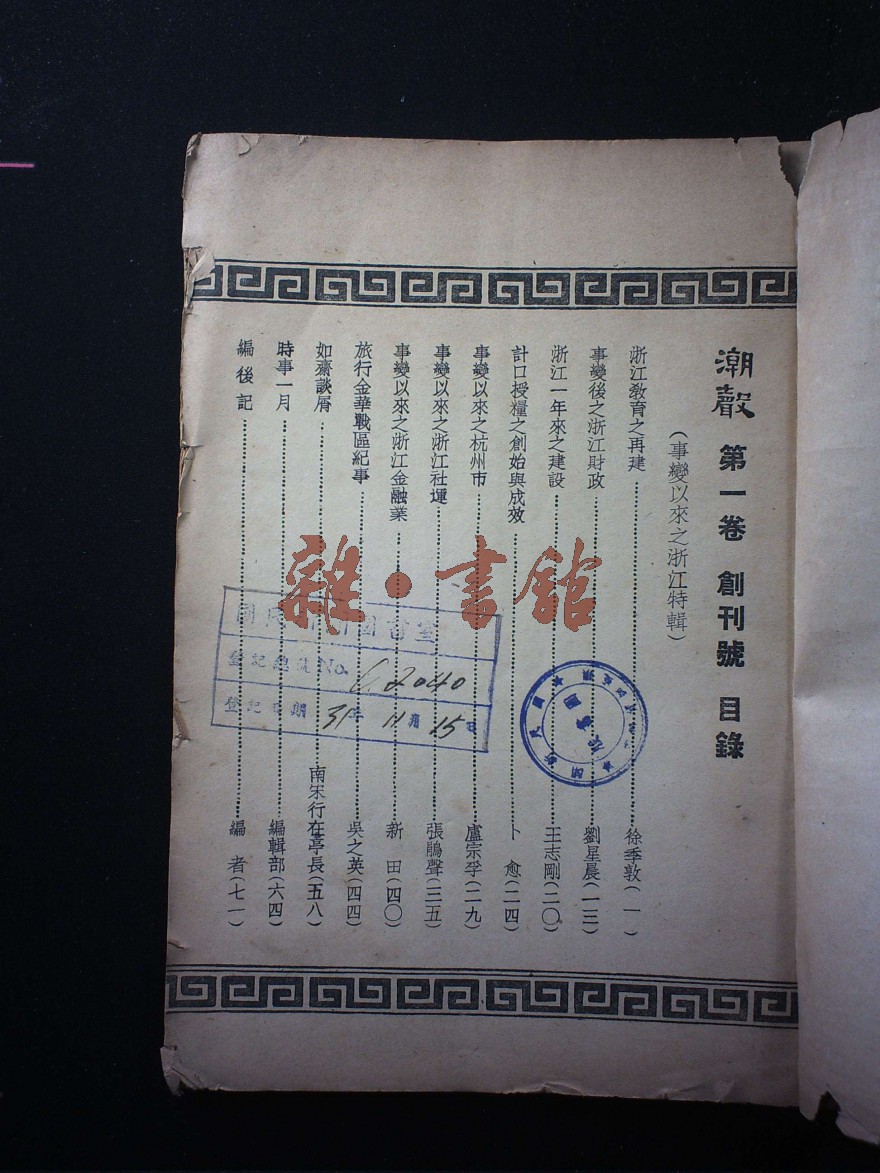 潮聲 第一卷 創刊號 目錄
(事變以來之浙江特輯)
浙江教育之再建 徐季敦(一)
事變後之浙江財政 劉星晨(一三)
浙江一年來之建設 王志剛(二〇)
計口授糧之創始與成效 卜愈(二四)
事變以來之杭州市 盧宗孚(二九)
事變以來之浙江社運 張鵑聲(三五)
事變以來之浙江金融業 新田(四〇)
旅行金華戰區紀事 吳之英(四四)
如齋談屑 南宋行在亭長(五八)
時事一月 編輯部(六四)
編後記 編者(七一)
雜·書館
圖書室
登記總號No. 2040
登記日期 31年 11月 15日